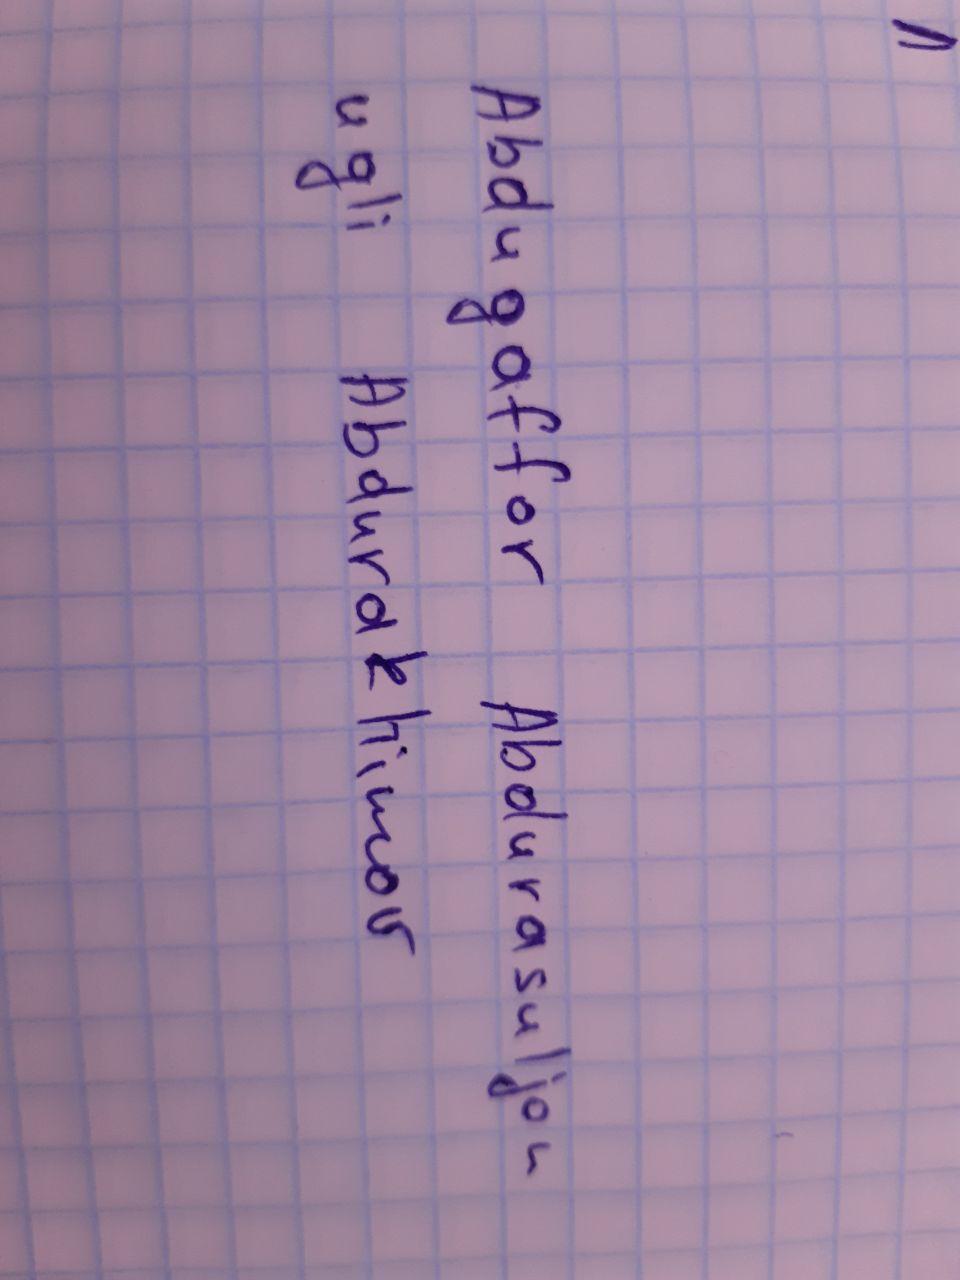 Abdugaffor Abdurasuljon
ugli Abdurakhimov